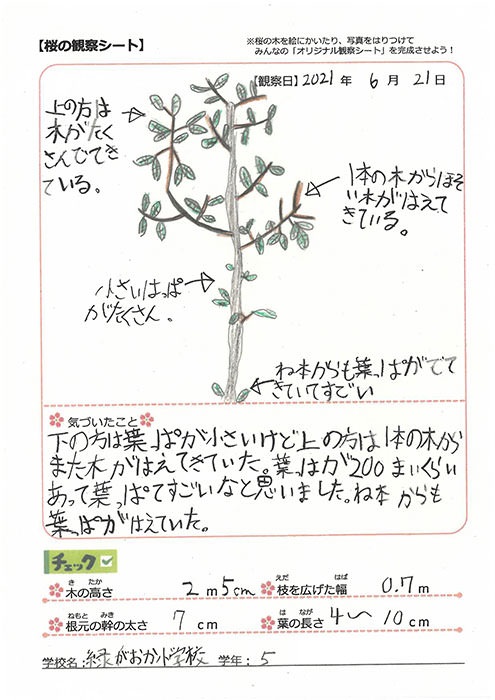 【桜の観察シート】
※桜の木を絵にかいたり、写真をはりつけて
みんなの「オリジナル観察シート」を完成させよう！
【観察日】2021年 6月 21日
上の方は
木がたく
さんでてき
ている。
1本の木からほそ
い木がはえて
きている。
小さいはっぱ
がたくさん。
ね本からも葉っぱがでて
きていてすごい
気づいたこと
下の方は葉っぱが小さいけど上の方は1本の木から
また木がはえてきていた。葉はが200まいくらい
あって葉っぱてすごいなと思いました。ね本からも
葉っぱがはえていた。
チェック
き たか
木の高さ 2m5cm
えだ はば
枝を広げた幅 0.7m
ねもと みき
根元の幹の太さ 7cm
は なが
葉の長さ 4〜10cm
学校名：緑がおか小学校 学年：5